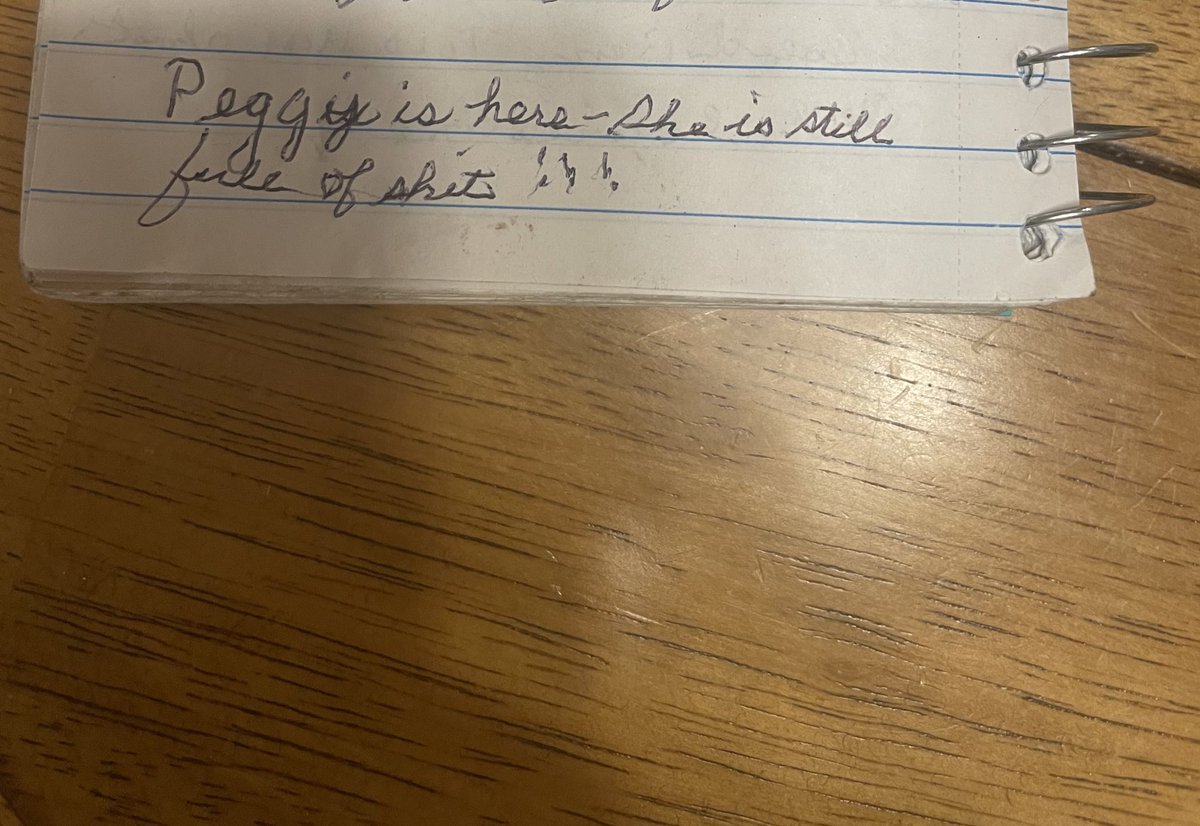 Peggy is here - She is still
full of shit !!!